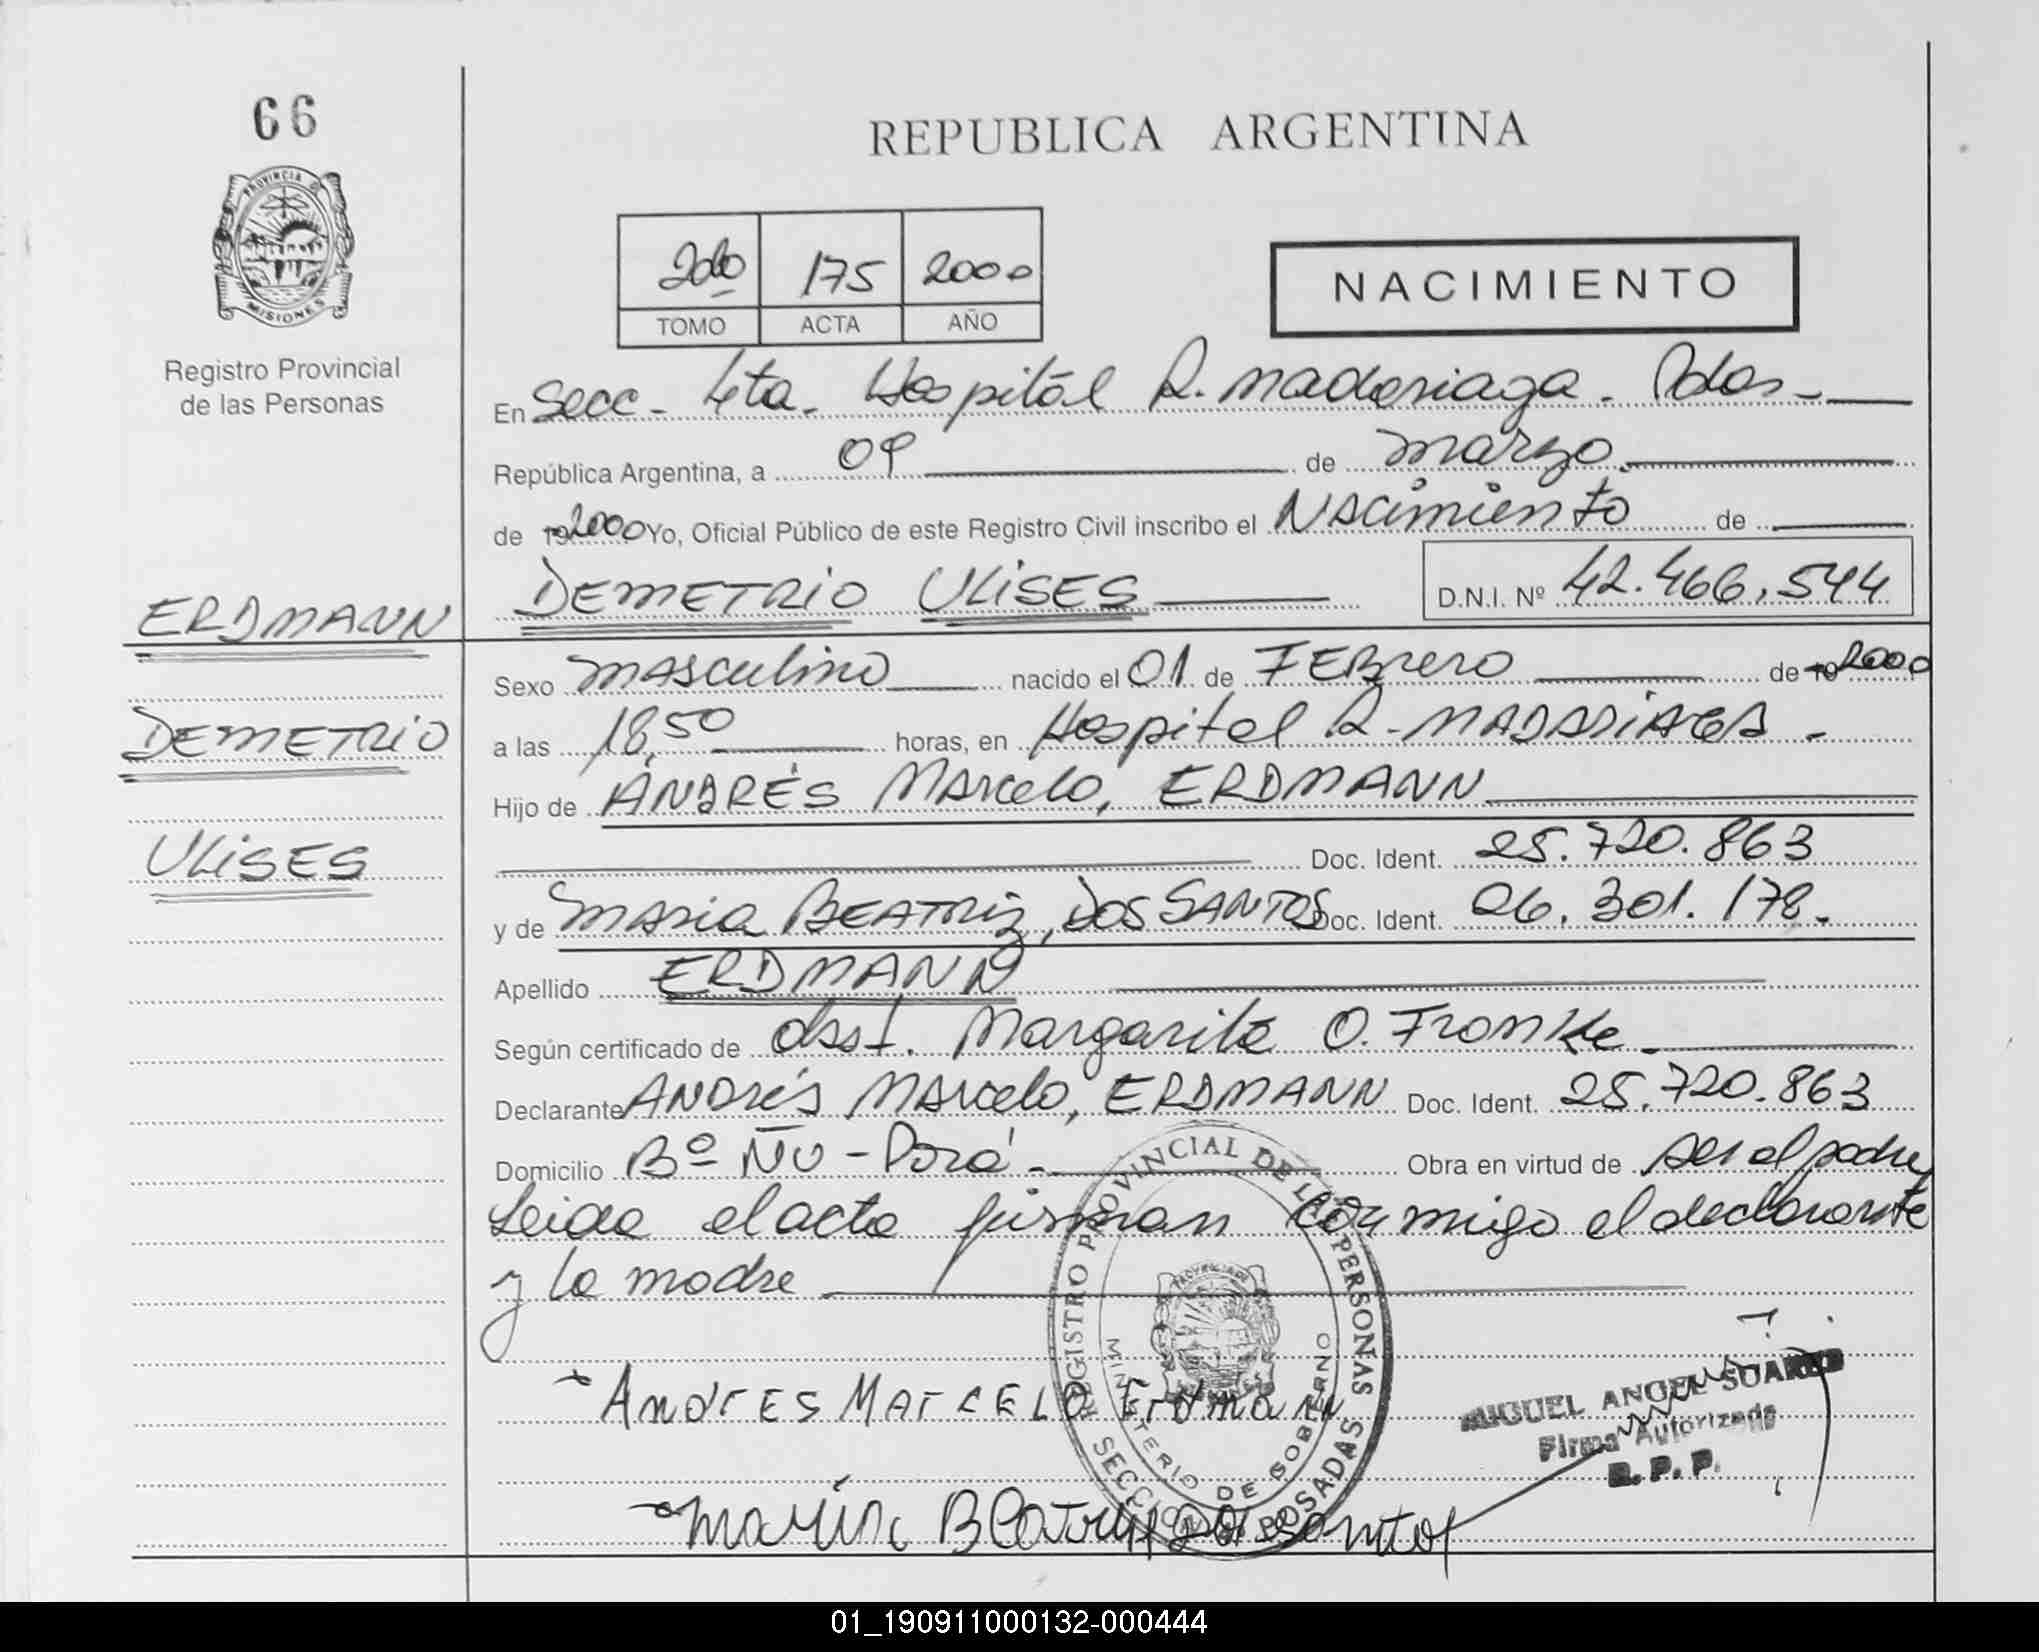 66
PROVINCIA D
MISIONES
Registro Provincial
de las Personas
REPUBLICA ARGENTINA
2do 175 2000
TOMO ACTA AÑO
NACIMIENTO
En Secc. 4ta. Hospital R. Madariaga. Pdas.
República Argentina, a 09 de marzo
de 19 2000 Yo, Oficial Público de este Registro Civil inscribo el Nacimiento de
DEMETRIO ULISES D.N.I. Nº 42.466.544
ERDMANN
DEMETRIO
ULISES
Sexo masculino nacido el 01 de FEBrero de 19 2000
a las 18,50 horas, en Hospital R. MADARIAGA.
Hijo de ANDRÉS Marcelo, ERDMANN
Doc. Ident. 25.720.863
y de Maria BEATRiz, DOS SANTOS Doc. Ident. 26.301.178.
Apellido ERDMANN
Según certificado de Obst. Margarita O. Fronke
Declarante ANDrés Marcelo, ERDMANN Doc. Ident. 25.720.863
Domicilio Bº ÑU - Porá Obra en virtud de ser el padre
Leida el acta firman conmigo el declarante
y la madre
REGISTRO PROVINCIAL DE LAS PERSONAS
MINISTERIO DE GOBIERNO
SECCION POSADAS
AndrES MArCELO Erdmann
MIGUEL ANGEL SUAREZ
Firma Autorizada
R. P. P.
María Beatriz Do santos
01_190911000132-000444